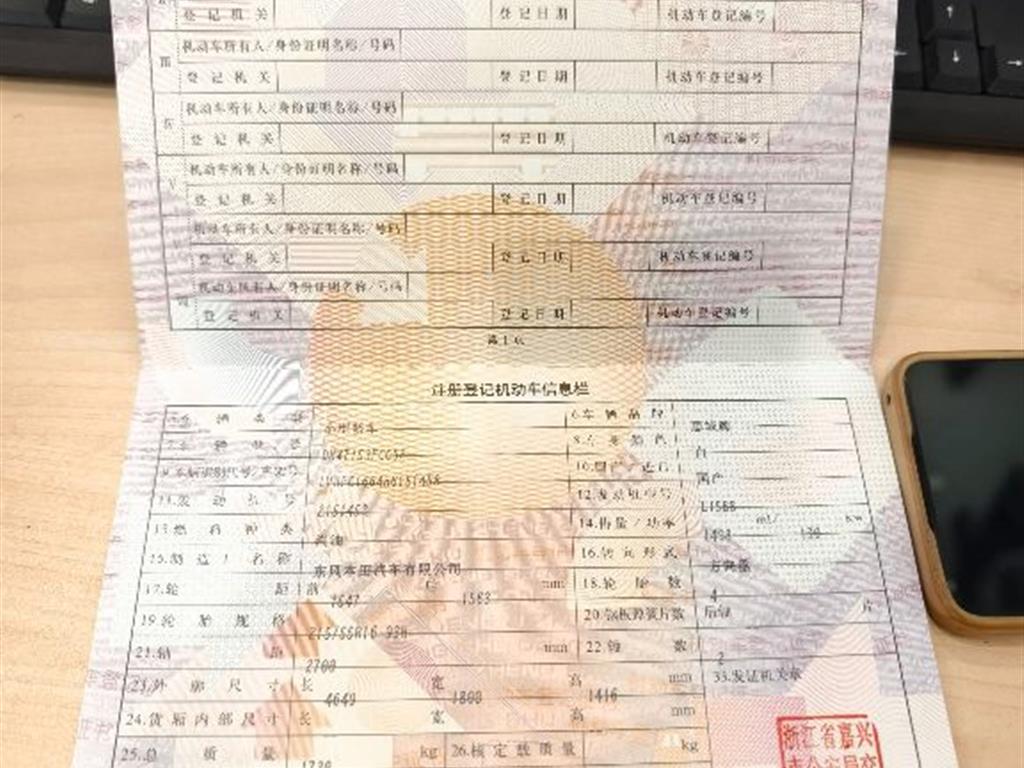 登记机关 登记日期 机动车登记编号
Ⅲ 机动车所有人/身份证明名称/号码
登记机关 登记日期 机动车登记编号
机动车所有人/身份证明名称/号码
登记机关 登记日期 机动车登记编号
机动车所有人/身份证明名称/号码
登记机关 登记日期 机动车登记编号
机动车所有人/身份证明名称/号码
登记机关 登记日期 机动车登记编号
机动车所有人/身份证明名称/号码
登记机关 登记日期 机动车登记编号
第1页
注册登记机动车信息栏
车辆类型 小型轿车 6.车辆品牌
车辆型号 8.车身颜色 白
9.车辆识别代号/车架号 10.国产/进口 国产
11.发动机号 12.发动机型号
13.燃料种类 汽油 14.排量/功率 ml/ kw
15.制造厂名称 东风本田汽车有限公司 16.转向形式 方向盘
17.轮距 前 1547 后 1563 mm 18.轮胎数 4
19.轮胎规格 215/55R16 93H 20.钢板弹簧片数 后轴 片
21.轴距 2700 mm 22.轴数 2
23.外廓尺寸 长 4649 宽 1800 高 1416 mm 33.发证机关章
24.货厢内部尺寸 长 宽 高 mm
25.总质量 kg 26.核定载质量 kg
浙江省嘉兴
市公安局交